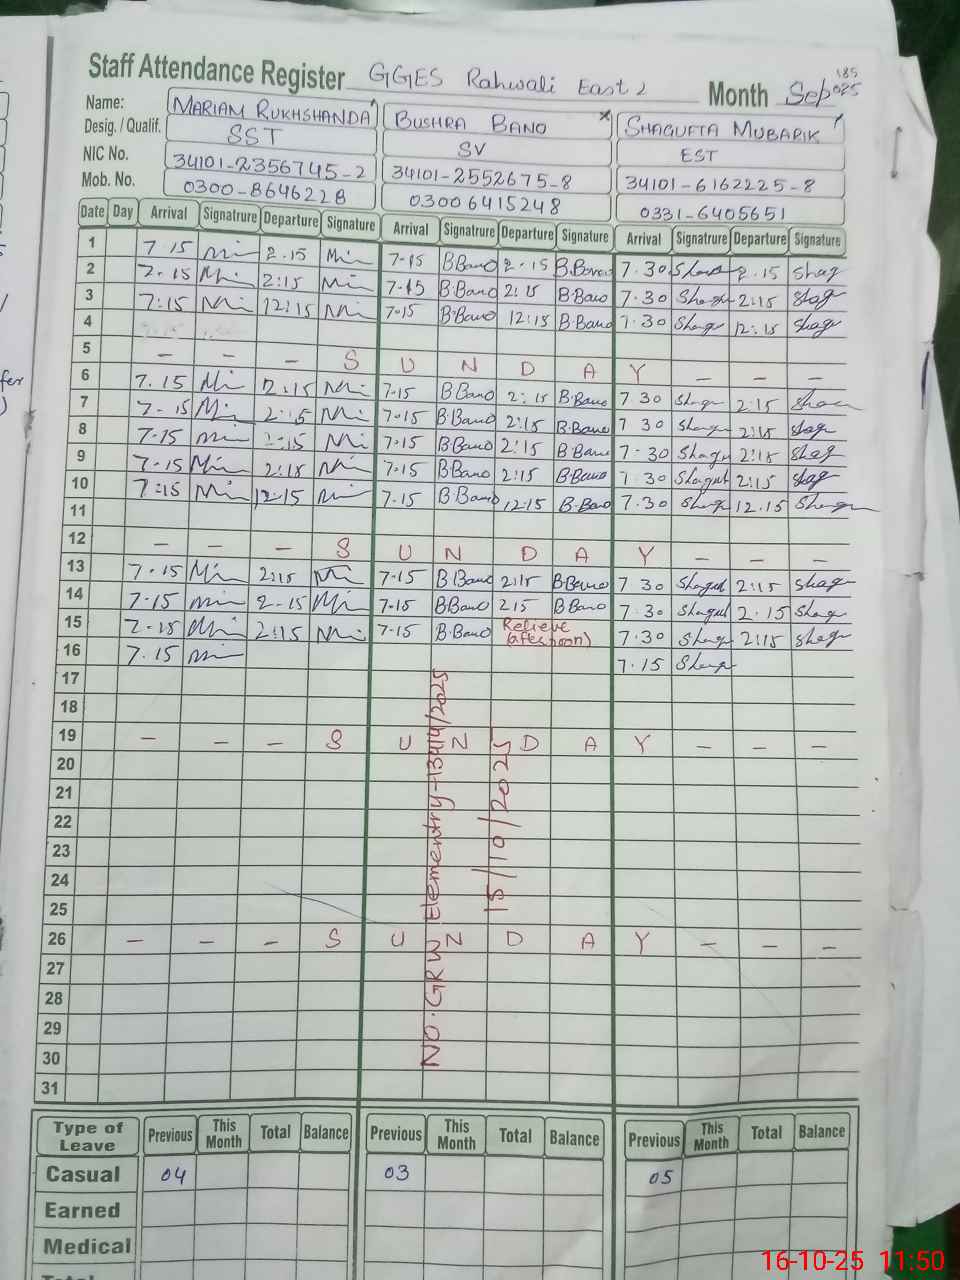 185
Staff Attendance Register GGES Rahwali East 2 Month Sep 025
Name: MARIAM RUKHSHANDA BUSHRA BANO SHAGUFTA MUBARIK
Desig. / Qualif. SST SV EST
NIC No. 34101-2356745-2 34101-2552675-8 34101-6162225-8
Mob. No. 0300-8646228 03006415248 0331-6405651
Date Day Arrival Signatrure Departure Signature Arrival Signatrure Departure Signature Arrival Signatrure Departure Signature
1 7.15 2.15 7-15 B.Bano 2.15 B.Bano 7.30 2.15 Shag
2 7.15 2:15 7-15 B.Bano 2:15 B.Bano 7.30 2:15 Shag
3 7:15 12:15 7-15 B.Bano 12:15 B.Bano 7.30 12:15 Shag
4
5 - - - S U N D A Y - - -
6 7.15 12:15 7-15 B Bano 2:15 B.Bano 7.30 2:15
7 7-15 2:15 7-15 B.Bano 2:15 B.Bano 7 30 2:15 Shag
8 7-15 2:15 7-15 B.Bano 2:15 B.Bano 7-30 2:15 Shag
9 7-15 2:15 7-15 B.Bano 2:15 B.Bano 7.30 2:15 Shag
10 7:15 12:15 7.15 B.Bano 12:15 B.Bano 7.30 12.15
11
12 - - - S U N D A Y - - -
13 7-15 2:15 7-15 B Bano 2:15 B Bano 7 30 2:15 Shag
14 7-15 2-15 7-15 B Bano 215 B Bano 7.30 2.15 Shag
15 7-15 2:15 7-15 B.Bano Relieve (afternoon) 7.30 2:15 Shag
16 7.15 7.15
17
18
19 - - - S U N D A Y - - -
20
21
22
23
24
25
26 - - - S U N D A Y - - -
27
28
29
30
31
NO.GRW Elementry-13414/2025
15/10/2025
Type of Leave Previous This Month Total Balance Previous This Month Total Balance Previous This Month Total Balance
Casual 04 03 05
Earned
Medical
Total
16-10-25 11:50